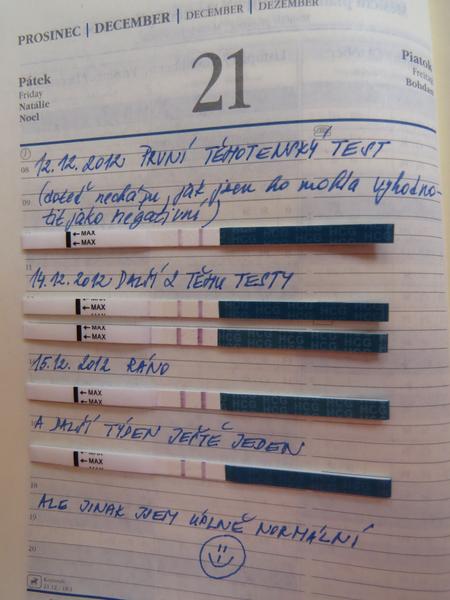 PROSINEC | DECEMBER | DECEMBER | DEZEMBER
Pátek
Friday
Natálie
Noel
21
Piatok
Freitag
Bohdan
08
12.12.2012 PRVNÍ TĚHOTENSKÝ TEST
09
(doteď nechápu, jak jsem ho mohla vyhodno-
tit jako negativní)
← MAX
← MAX
11
14.12.2012 DALŠÍ 2 TĚHU TESTY
← MAX
HCG HCG HCG
← MAX
HCG HCG HCG
15.12.2012 RÁNO
← MAX
HCG HCG HCG
A DALŠÍ TÝDEN JEŠTĚ JEDEN
← MAX
← MAX
18
ALE JINAK JSEM ÚPLNĚ NORMÁLNÍ
19
20